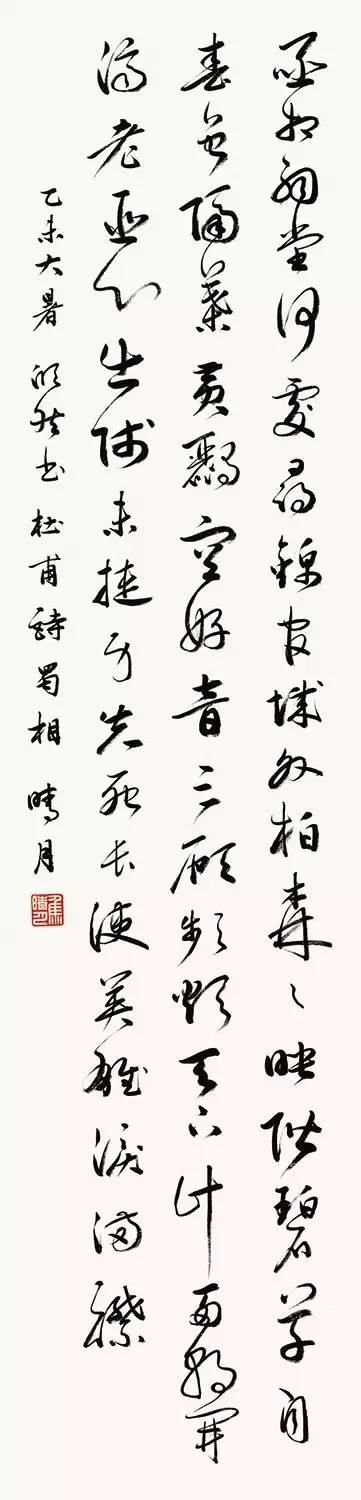 丞相祠堂何處尋錦官城外柏森々映階碧草自
春色隔葉黃鸝空好音三顧頻煩天下計兩朝開
濟老臣心出師未捷身先死長使英雄淚滿襟
乙未大暑 欣然書杜甫詩蜀相 晴月
焦晴月